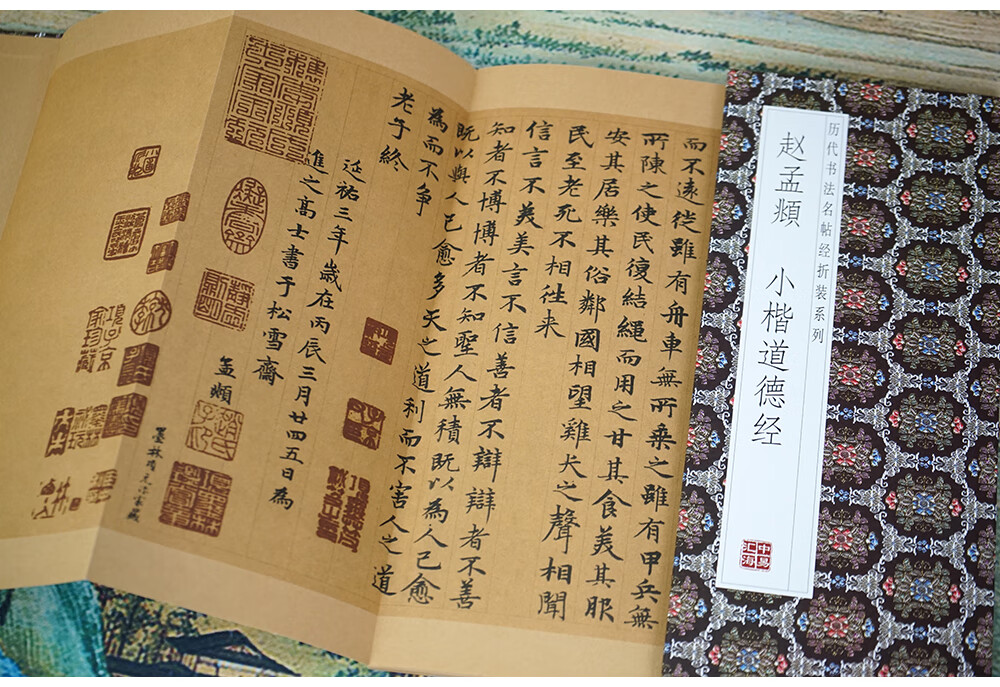 历代书法名帖经折装系列
赵孟頫 小楷道德经
中易汇海
而不遠徙雖有舟車無所乘之雖有甲兵無
所陳之使民復結繩而用之甘其食美其服
安其居樂其俗鄰國相望雞犬之聲相聞
民至老死不相往来
信言不美美言不信善者不辯辯者不善
知者不博博者不知聖人無積既以為人己愈
既以與人己愈多天之道利而不害人之道
為而不争
老子終
延祐三年歲在丙辰三月廿四五日為
進之高士書于松雪齋
孟頫
趙氏子昂
項子京家珍藏
墨林項元汴家藏